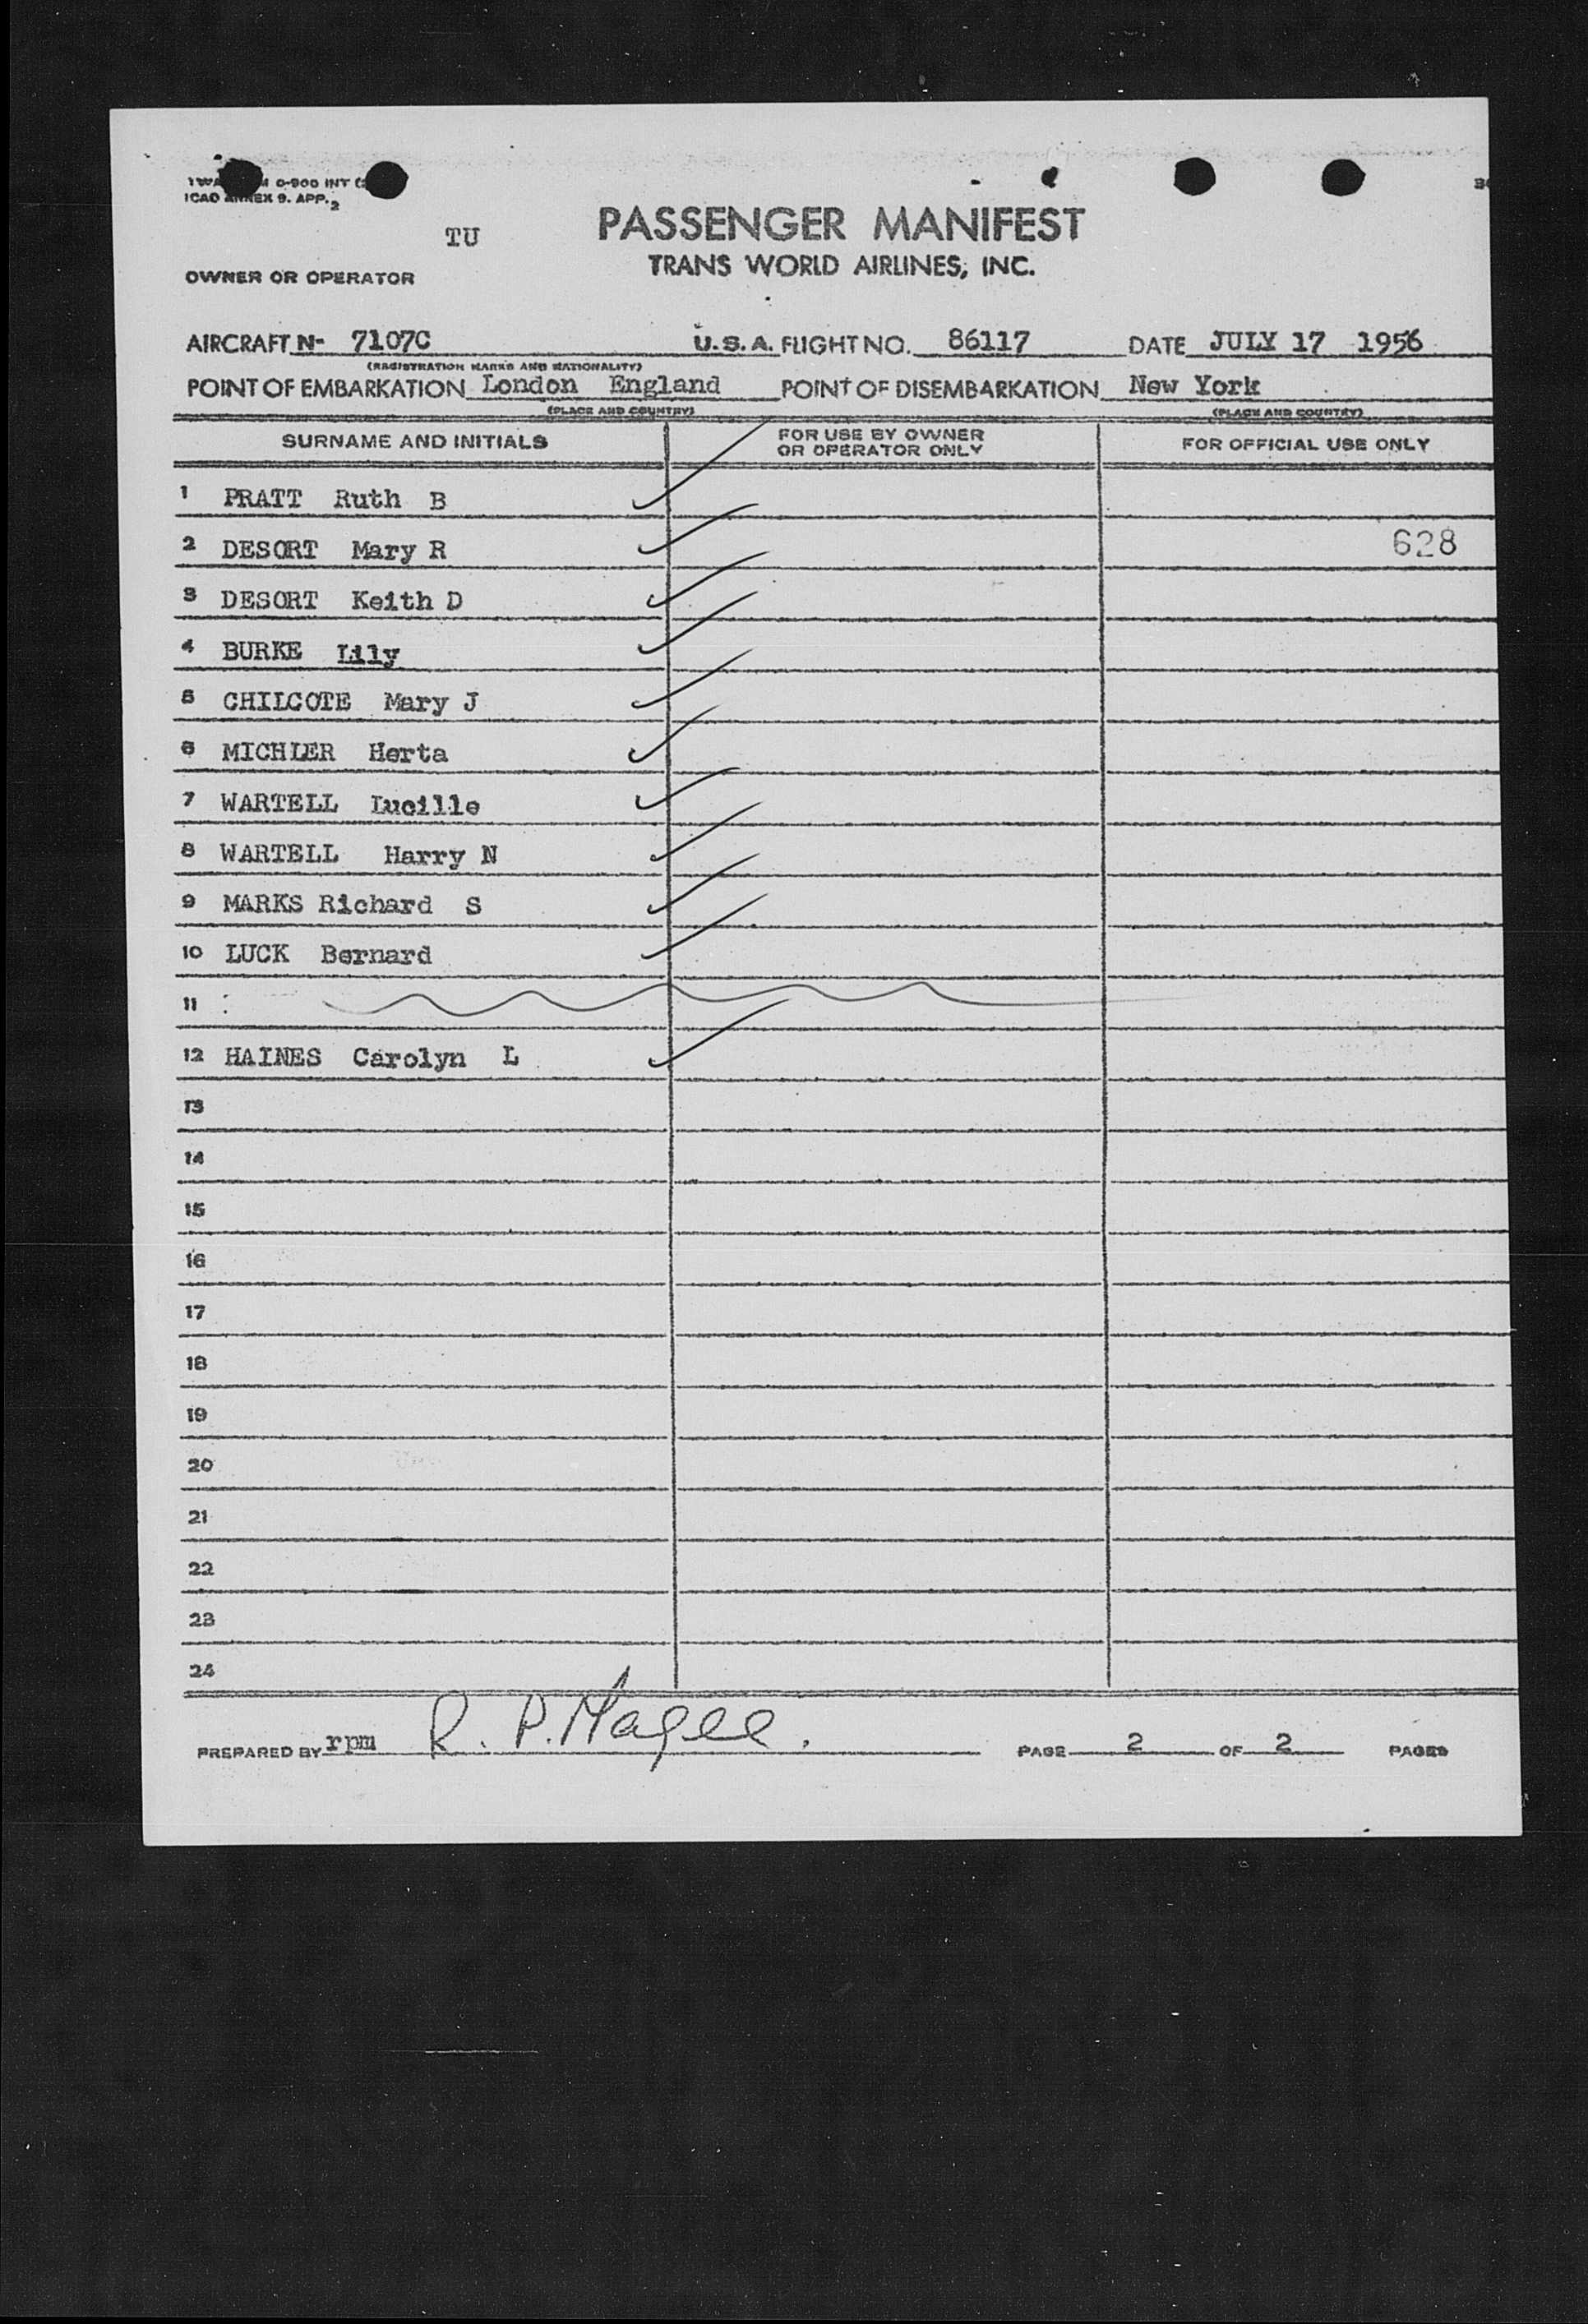 0-900 INT
ICAO ANNEX 9. APP. 2
TU
PASSENGER MANIFEST
OWNER OR OPERATOR
TRANS WORLD AIRLINES, INC.
AIRCRAFT N- 7107C U.S.A. FLIGHT NO. 86117 DATE JULY 17 1956
(REGISTRATION MARKS AND NATIONALITY)
POINT OF EMBARKATION London England POINT OF DISEMBARKATION New York
(PLACE AND COUNTRY) (PLACE AND COUNTRY)
SURNAME AND INITIALS FOR USE BY OWNER OR OPERATOR ONLY FOR OFFICIAL USE ONLY
1 PRATT Ruth B
2 DESORT Mary R 628
3 DESORT Keith D
4 BURKE Lily
5 CHILCOTE Mary J
6 MICHLER Herta
7 WARTELL Lucille
8 WARTELL Harry N
9 MARKS Richard S
10 LUCK Bernard
11
12 HAINES Carolyn L
13
14
15
16
17
18
19
20
21
22
23
24
PREPARED BY rpm R. P. Magee. PAGE 2 OF 2 PAGES